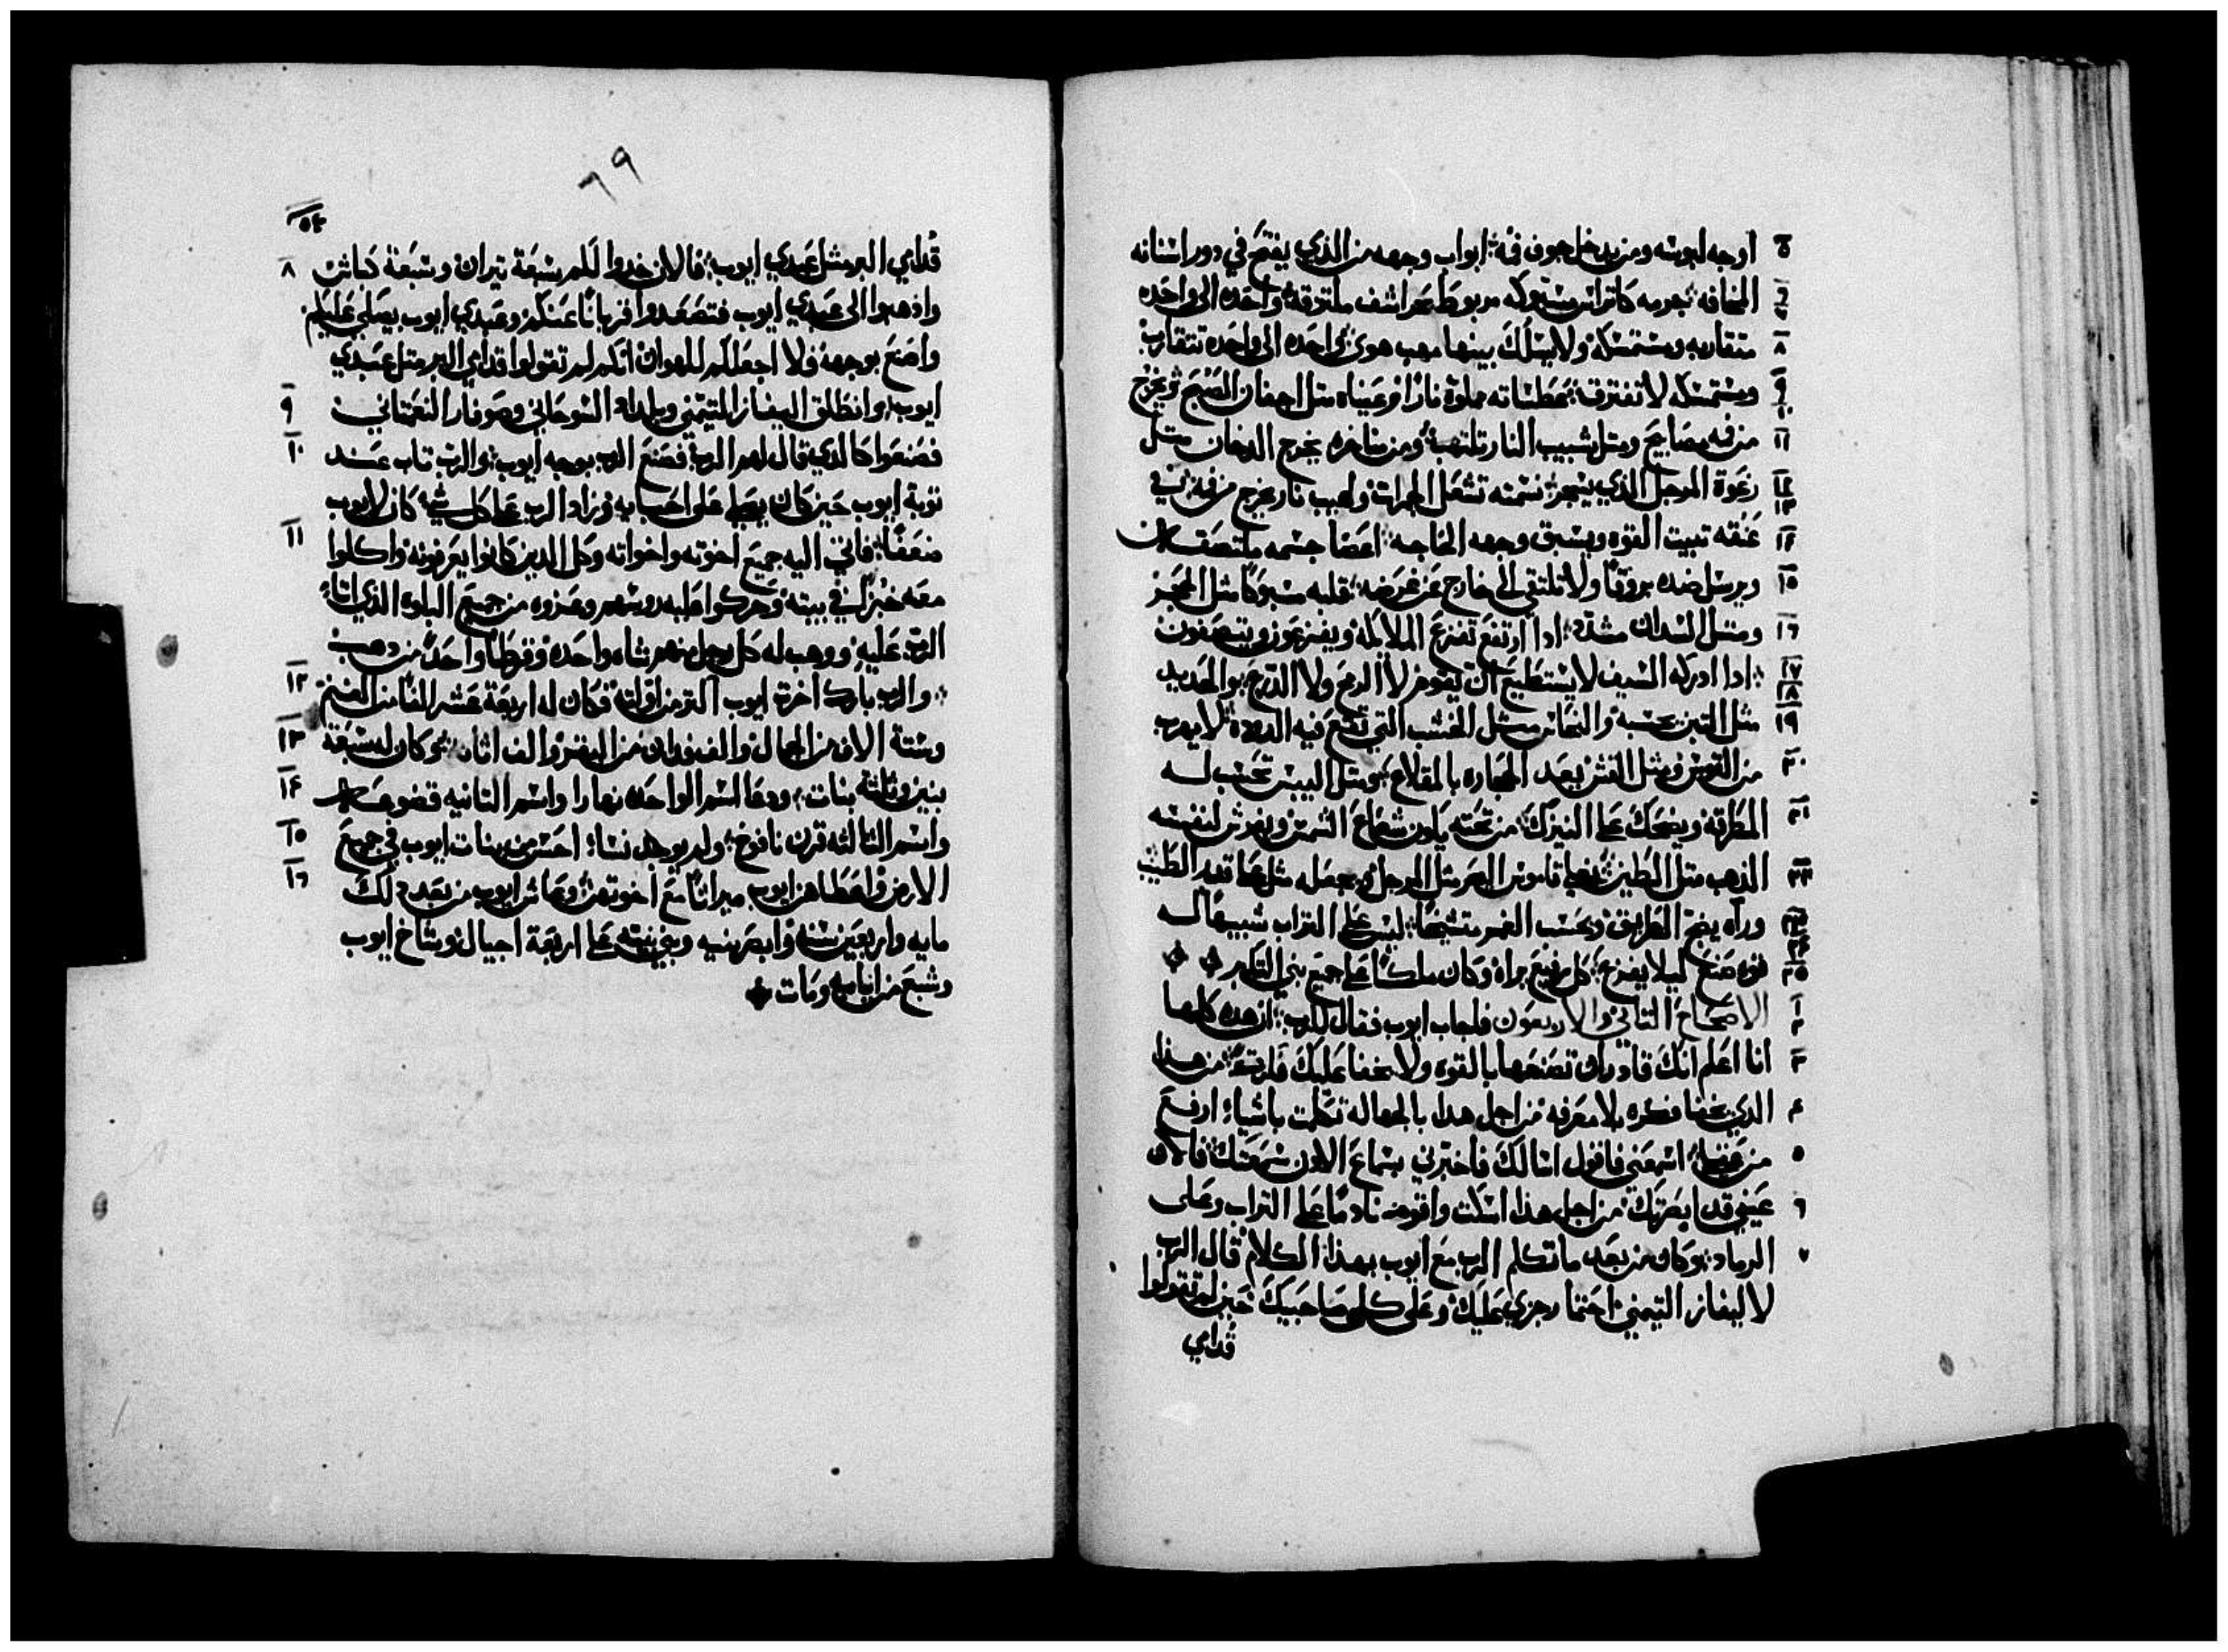 ٥ اوجه لبوسه ومن يدخل جوف فه ابواب وجهه من الذي يفتح في دور اسنانه
٦ ٧ المخافه جرمه كاتراس مسبوكه مربوط بحراشف ملتزقه واحده الى واحده
٨ متقاربه ومستمسكه ولا يسلك بينها مهب هوى واحده الى واحده تتقارب
٩ ١٠ ومستمسكه لا تفترقه عطساته مملوة نارًا وعيناه متل اجفان الصبح ويخرج
١١ من فيه مصابيح ومتل شبيب النار تلتهب ومن مناخره يخرج الدخان متل
١٢ ١٣ رغوة المرجل الذي ينجر نسمته تشعل الجمرات ولهيب نار يخرج من فيه في
١٤ عنقه تبيت القوه ويسبق وجهه الحاجه اعضا جسمه ملتصقات
١٥ ويرسل ضده بروقًا ولا تلتقي الى خارج عن غرضه قلبه مسبوكًا متل الحجر
١٦ ومتل السدان مشتد ادا ارتفع تفزع الملايكة ويفزعون ويتصفون
١٧ ١٨ ادا ادركه السيف لا يستطيع ان يقوم لا الرمح ولا الدرع والحديد
١٩ متل التبن يحسبه والنحاس متل الخشب التي تقع فيه الدوده لا يهرب
٢٠ من القوس ومتل القش يعد الحجاره بالمقلاع ومتل اليبس تحسب له
٢١ المطرقة ويضحك على النيزك من تحته يكون شعاع الشمس ويفرش لنفسه
٢٢ الذهب متل الطين يغلي قاموس البحر متل المرجل ويجعله متل عاقد الطيب
٢٣ وراه يضي الطريق ويحسب الغمر متشيخًا ليس على التراب شبيهًا له
٢٤ ٢٥ فوه صنع ليلا يفزع كل رفيع يراه وكان ملكًا على جميع بني التكبر
١ ٢ الاصحاح التاني والاربعون فاجاب ايوب فقال للرب ان هده كلها
٣ انا اعلم انك قادر ان تصنعها بالقوه ولا يخفا عليك فكرة من هدا
٤ الدي يخفا فكره بلا معرفه من اجل هدا بالجهاله تكلمت باشياء ارفع
٥ من عقلي اسمعني فاقول اسالك فاخبرني بسماع الادن سمعتك فالان
٦ عيني قد ابصرتك من اجل هدا اسكت واقوم نادمًا على التراب وعلى
٧ الرماد وكان من بعد ما تكلم الرب مع ايوب بهدا الكلام قال الرب
لاليفاز التيمني احتما رجزي عليك وعلى كلي صاحبيك حين لم تقولوا
قدامي
٦٩
٥٤
٨ قدامي البر متل عبدي ايوب فالان خدوا لكم سبعة تيران وسبعة كباش
واذهبوا الى عبدي ايوب فتصعدوا قربانًا عنكم وعبدي ايوب يصلي عليكم
واصنع بوجهه فلا اجعلكم للهوان انكم لم تقولوا قدامي البر متل عبدي
٩ ايوب وانطلق اليفاز المتيمني وبلداد السوحاني وصوفار النعمتاني
١٠ فصنعوا كالدي قال لهم الرب فصنع الرب بوجه ايوب والرب تاب عند
توبة ايوب حين كان يصلي على اصحابه وزاد الرب على كل شيء كان لايوب
١١ ضعفًا فاتى اليه جميع اخوته واخواته وكل الدين كانوا يعرفونه واكلوا
معه خبزًا في بيته وحركوا عليه روسهم وعزوه من جميع البلوه الذي اتاء
الرب عليه ووهب له كل رجل منهم شاه واحده وقرطًا واحدًا من دهب
١٢ والرب بارك اخرة ايوب اكتر من اولته فكان له اربعة عشر الفًا من الغنم
١٣ وستة الاف من الجمال والف فدان من البقر والف اتان وكان له سبعة
١٤ بنين وتلتة بنات ودعا اسم الواحده نهارا واسم التانيه قضوعه
١٥ واسم التالته قرن نافوخ ولم يوجد نساء احسن من بنات ايوب في جميع
١٦ الارض واعطاهن ايوب ميراتًا مع اخوتهن وعاش ايوب من بعد دلك
مايه واربعين سنه وابصر بنيه وبني بنيه على اربعة اجيال وشاخ ايوب
وشبع من ايامه ومات